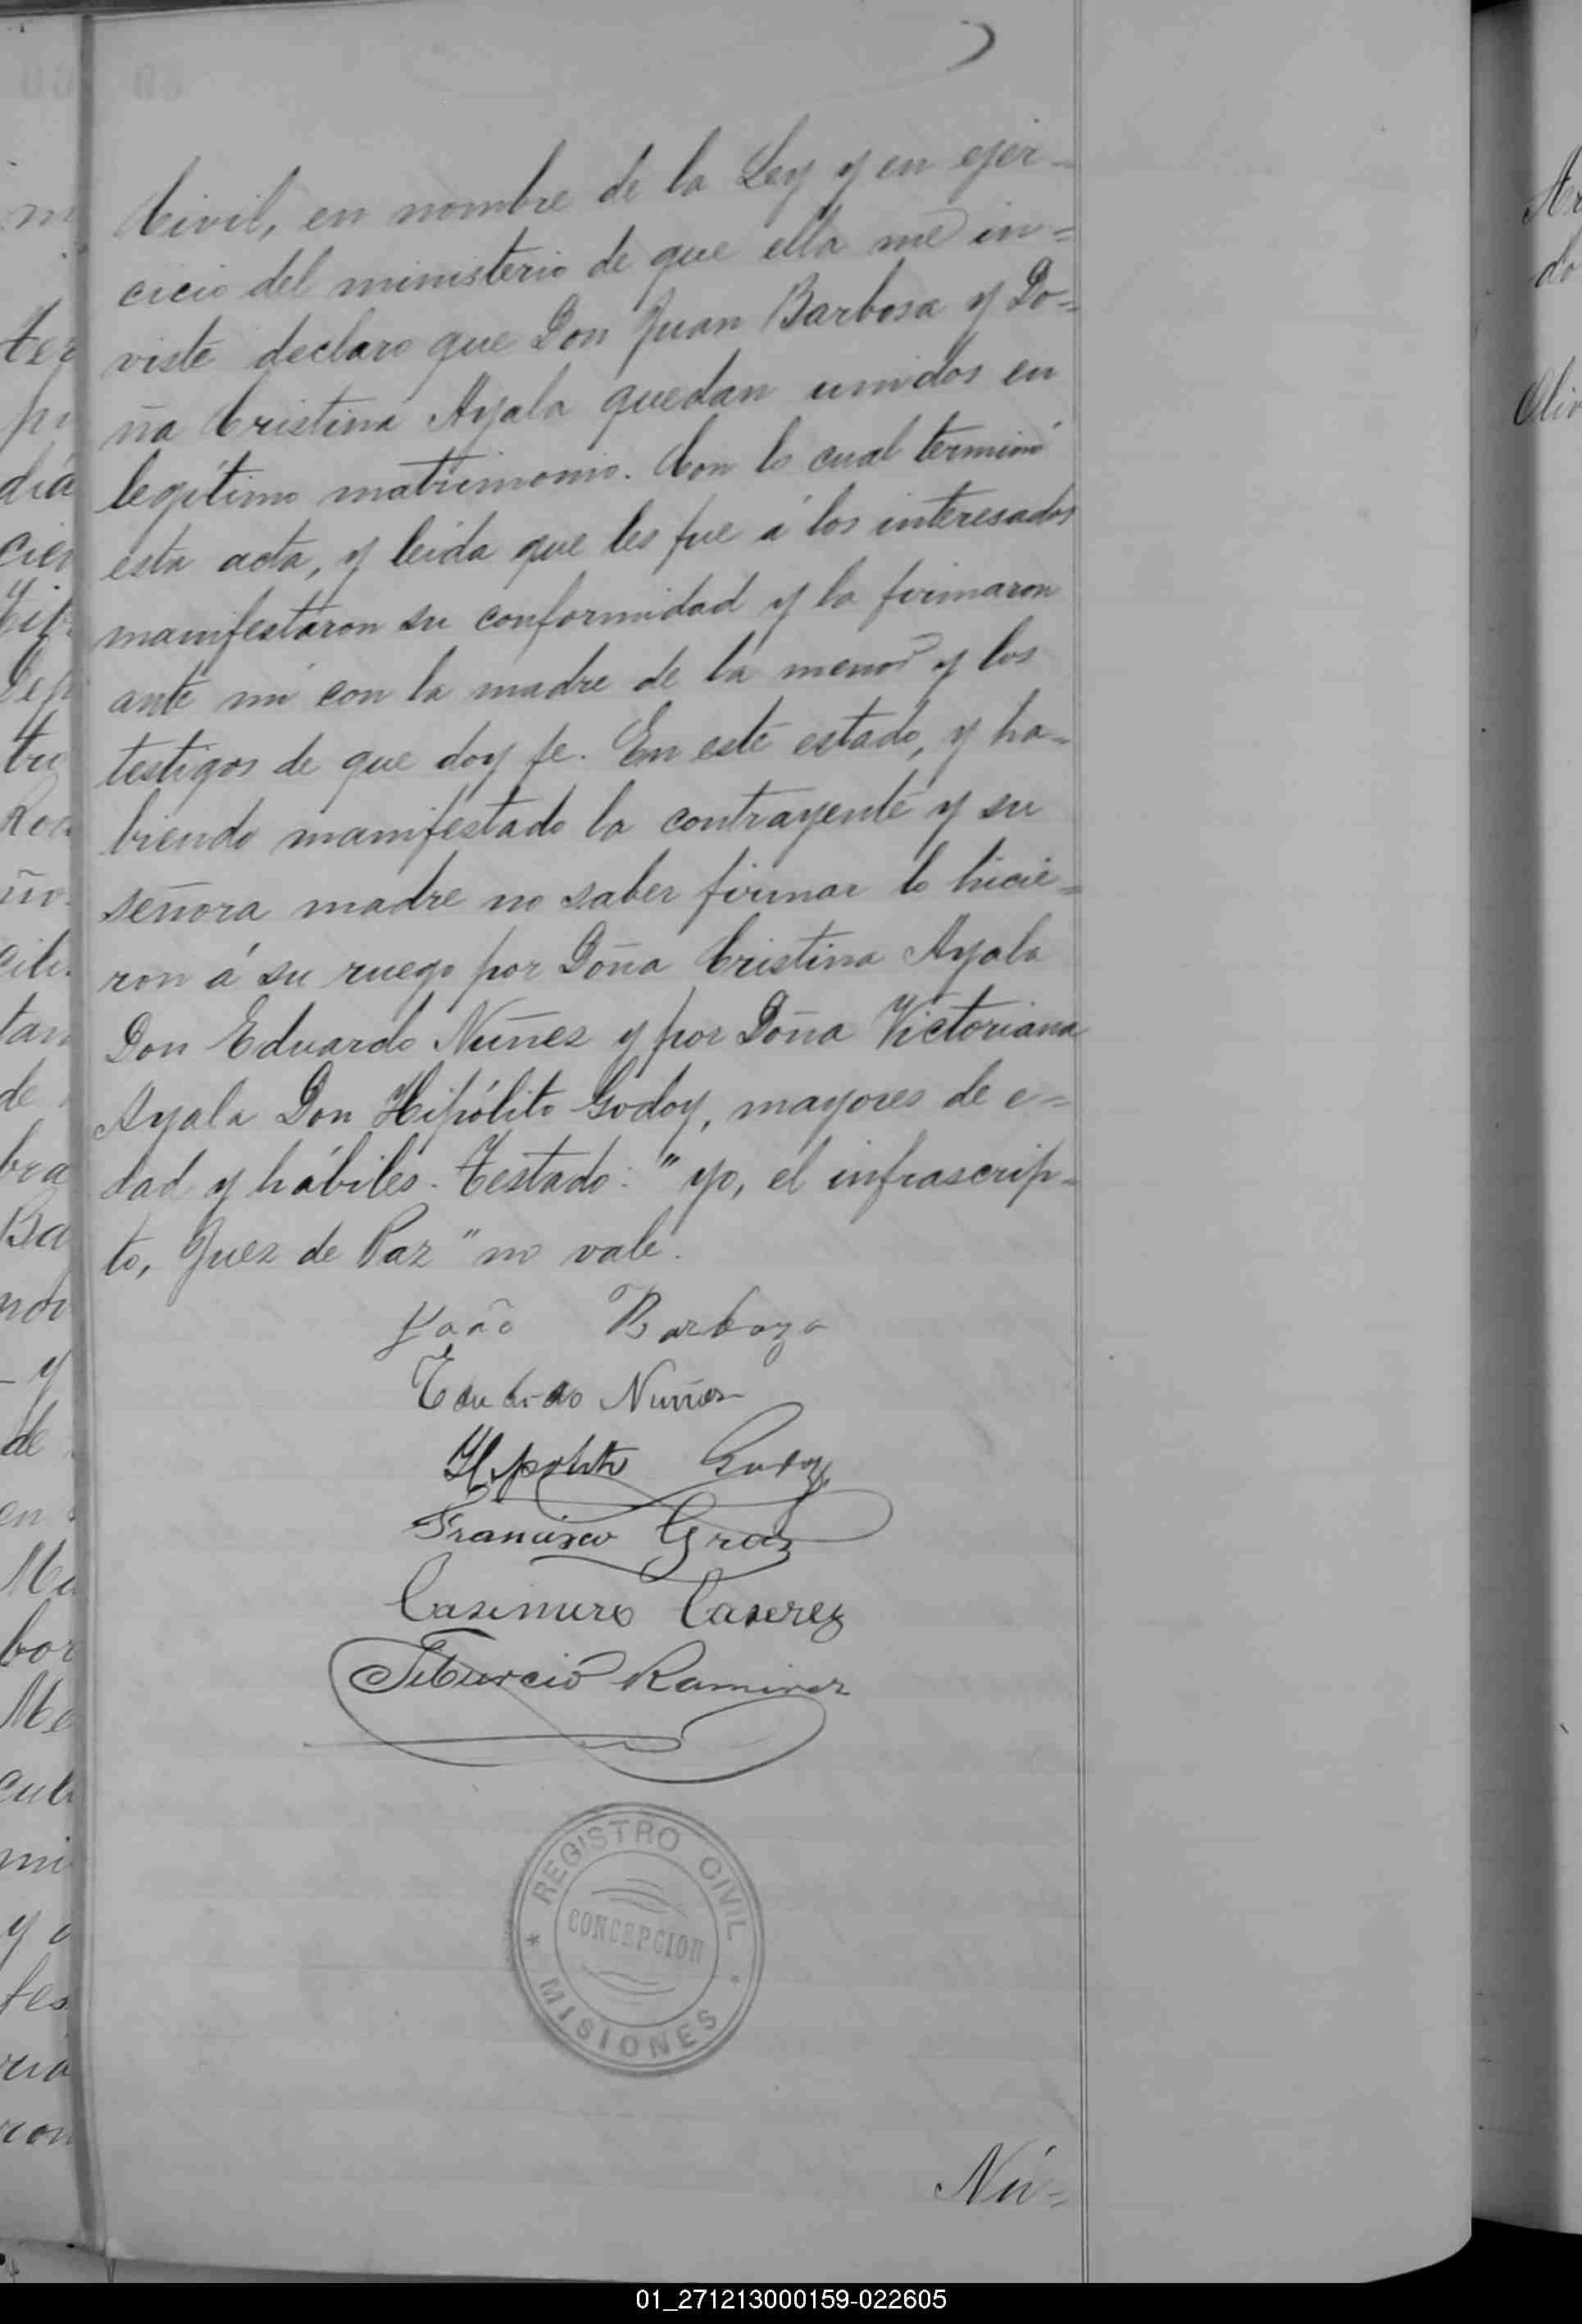 Civil, en nombre de la Ley y en ejer-
cicio del ministerio de que ella me in=
viste declaro que Don Juan Barbosa y Do=
ña Cristina Ayala quedan unidos en
legítimo matrimonio. Con lo cual terminó
esta acta, y leida que les fue á los interesados
manifestaron su conformidad y la firmaron
ante mi con la madre de la menor y los
testigos de que doy fe. En este estado, y ha-
biendo manifestado la contrayente y su
señora madre no saber firmar lo hicie=
ron á su ruego por Doña Cristina Ayala
Don Eduardo Nuñez y por Doña Victoriana
Ayala Don Hipólito Godoy, mayores de e=
dad y hábiles. Testado: "yo, el infrascrip-
to, Juez de Paz" no vale.
João Barboza
Eduardo Nuñez
Hipolito Godoy
Francisco
Casimiro Caserez
Tiburcio Ramirez
REGISTRO CIVIL
CONCEPCION
MISIONES
Nú=
01_271213000159-022605